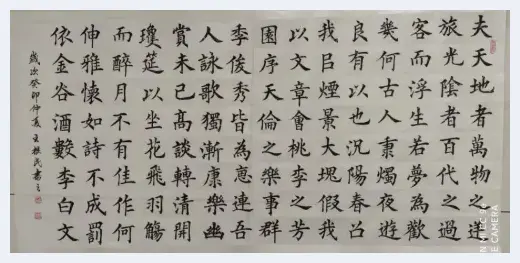 夫天地者萬物之逆
旅光陰者百代之過
客而浮生若夢為歡
幾何古人秉燭夜遊
良有以也況陽春召
我㠯煙景大塊假我
以文章會桃李之芳
園序天倫之樂事群
季俊秀皆為惠連吾
人詠歌獨漸康樂幽
賞未已高談轉清開
瓊筵以坐花飛羽觴
而醉月不有佳作何
伸雅懷如詩不成罰
依金谷酒數李白文
歲次癸卯仲夏王民書
CAMERA